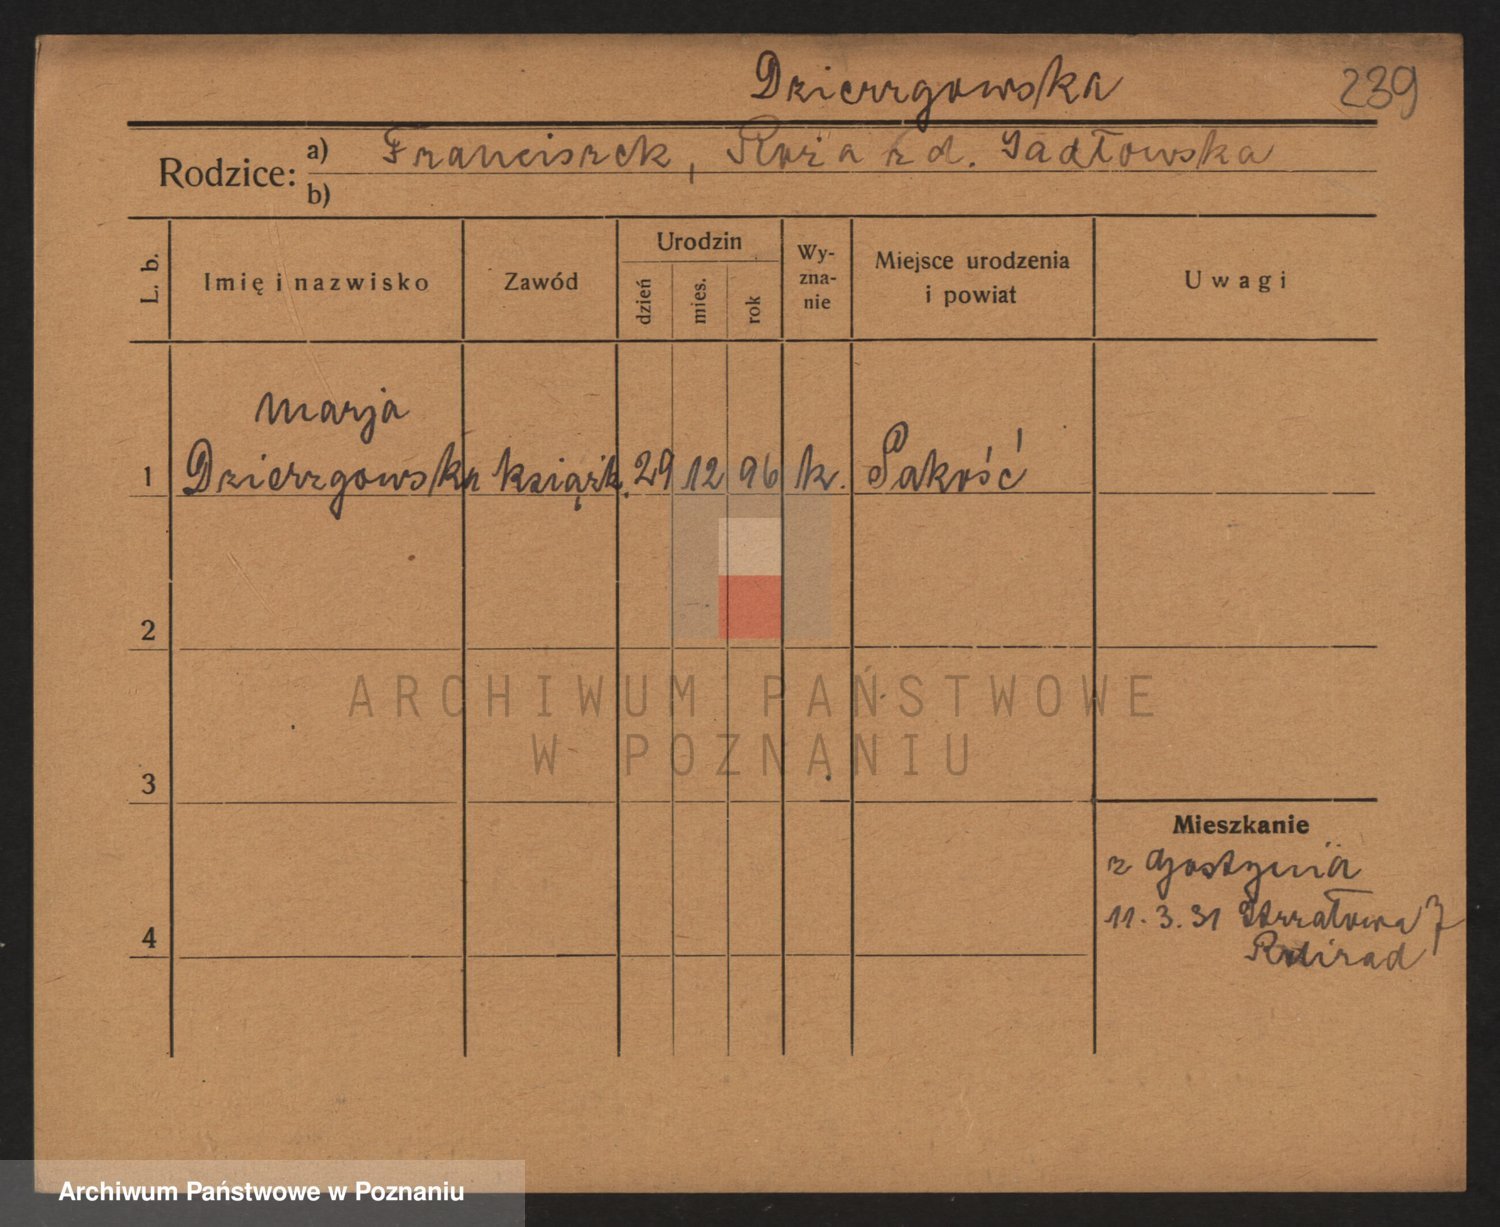 Dzierzgowska 239
Rodzice: a) Franciszek, Róża zd. Sadłowska
b)
L. b. Imię i nazwisko Zawód Urodzin dzień mies. rok Wy-
zna-
nie Miejsce urodzenia
i powiat Uwagi
Marja
1 Dzierzgowska książk. 29 12 96 k. Pakość
2
ARCHIWUM PAŃSTWOWE
W POZNANIU
3
Mieszkanie
z Gostynia
11.3.31 Strzałowa 7
4
Archiwum Państwowe w Poznaniu